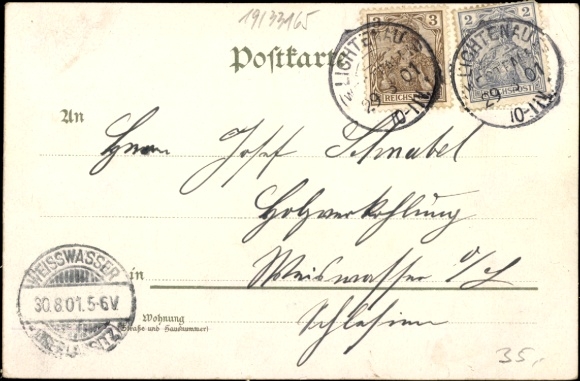 19133165
Postkarte
3
REICHSPOST
2
REICHSPOST
LICHTENAU
29 01
10-11V.
LICHTENAU
29 01
10-11V.
An
Herrn Josef Schnabel
Holzverkohlung
in Weiswasser O/L
Schlesien
Wohnung
(Straße und Hausnummer)
WEISSWASSER
30.8.01.5-6V
(OB. LAUSITZ)
35,-